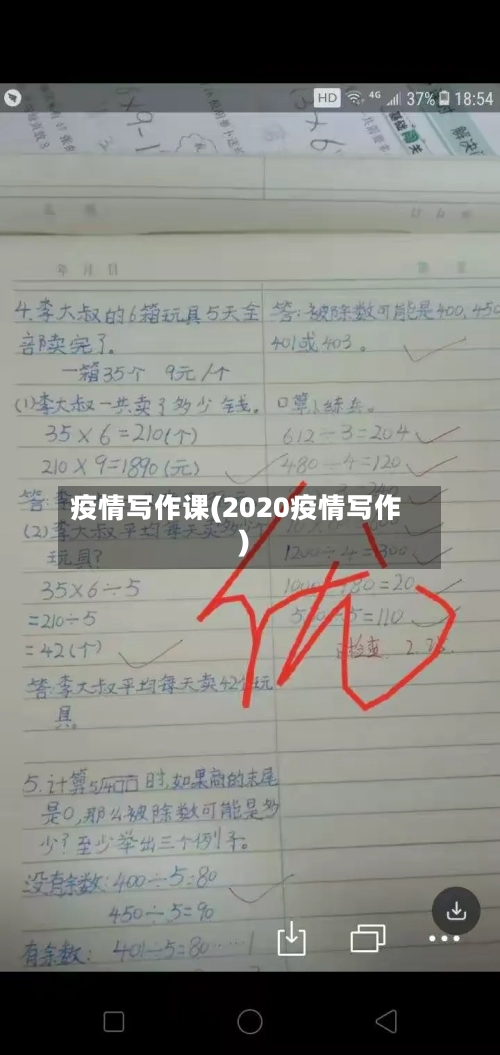 HD 4G 37% 18:54
6×9-1
基础闯关
解决
年 月 日
4.李大叔的6箱玩具5天全
部卖完了。
一箱35个 9元/个
(1)李大叔一共卖了多少钱。
35×6=210(个)
210×9=1890(元)
答:李
(2)李大叔平均每天卖多少个
玩具?
35×6÷5
=210÷5
=42(个)
答:李大叔平均每天卖42个玩
具。
5.计算5√4□□时,如果商的末尾
是0,那么被除数可能是多
少?至少举出三个例子。
没有余数:400÷5=80
450÷5=90
有余数:401÷5=80……1
答:被除数可能是400,450
401或403。
口算练兵。
612÷3=204
480÷4=120
1200÷4=300
÷80=20
5 ÷5=110
已检查 2.28.
优
疫情写作课(2020疫情写作
)